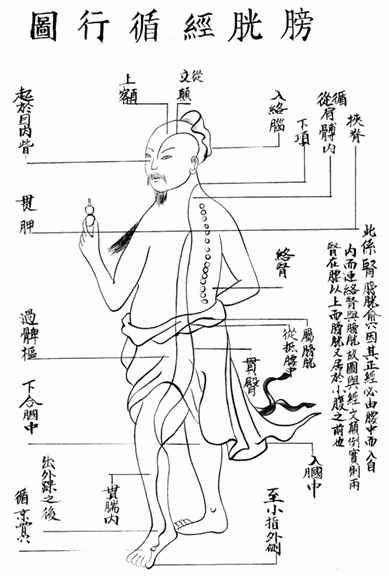 膀胱經循行圖
從
交
顛
上額
入絡腦
下項
循
從肩髆內
挾脊
起於目內眥
貫胛
絡腎
此係腎膀胱俞穴因其正經必由腰中而入自
內而連絡腎與膀胱故圖與經文顛倒實則兩
腎在腰以上而膀胱又居於小腹之前也
屬膀胱
從抵腰中
貫臀
過髀樞
下合膕中
入膕中
貫腨內
出外踝之後
循京骨
至小指外側